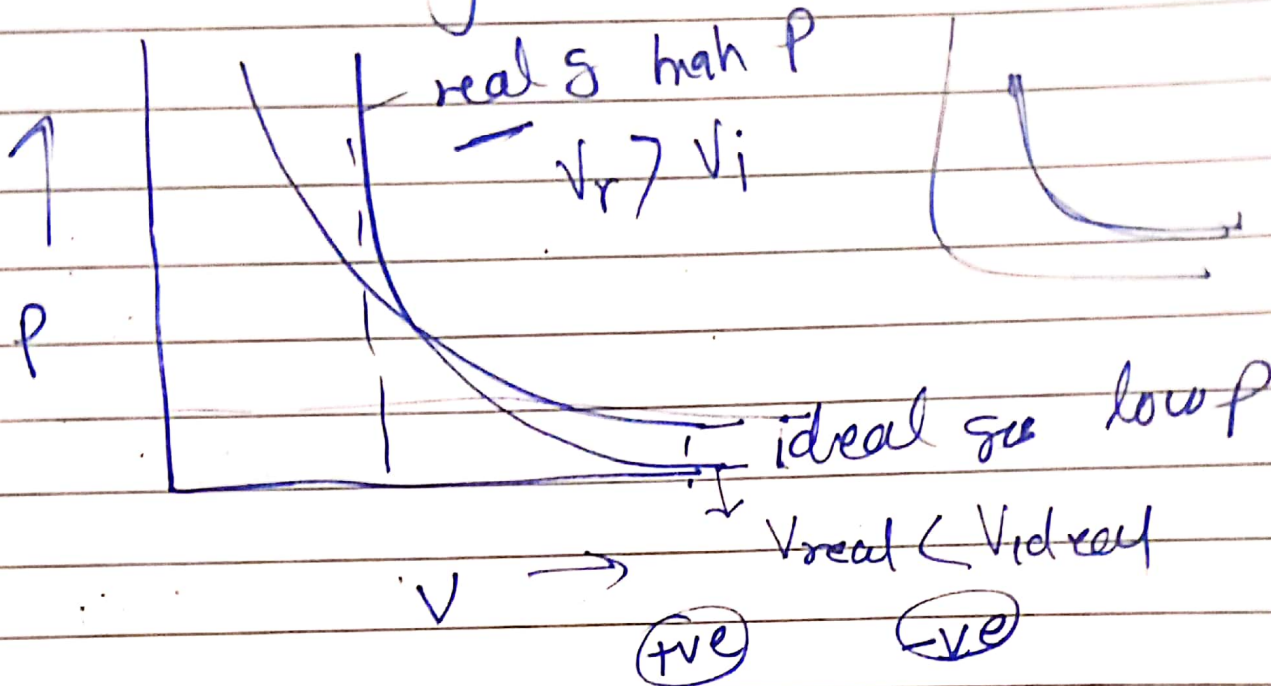 real g high P
Vr > Vi
P
ideal gas low P
Vreal < Videal
V
+ve -ve